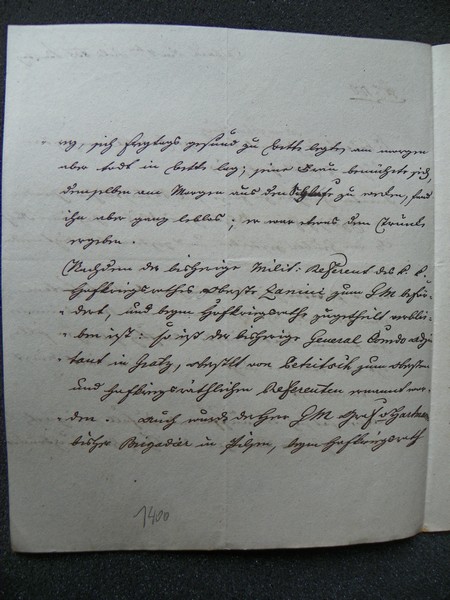 er, sich Freytags gesund zu Bette legte, am morgen
aber todt im Bette lag; seine Frau bemühete sich,
denselben am Morgen aus dem Schlafe zu wecken, fand
ihn aber ganz leblos; er war etwas dem Trunke
ergeben.
Nachdem der bisherige Milit: Referent des k. k.
Hofkriegsrathes Oberste Zanini zum GM beför-
dert, und beym Hofkriegsrathe zugetheilt verblie-
ben ist: so ist der bisherige General Com̅do Adju-
tant in Gratz, Obristlt von zum Obersten
und hofkriegsräthlichen Referenten ernannt wor-
den. Auch wurde der Herr GM Graf
bisher Brigadier in Pilsen, beym Hofkriegsrath
1400